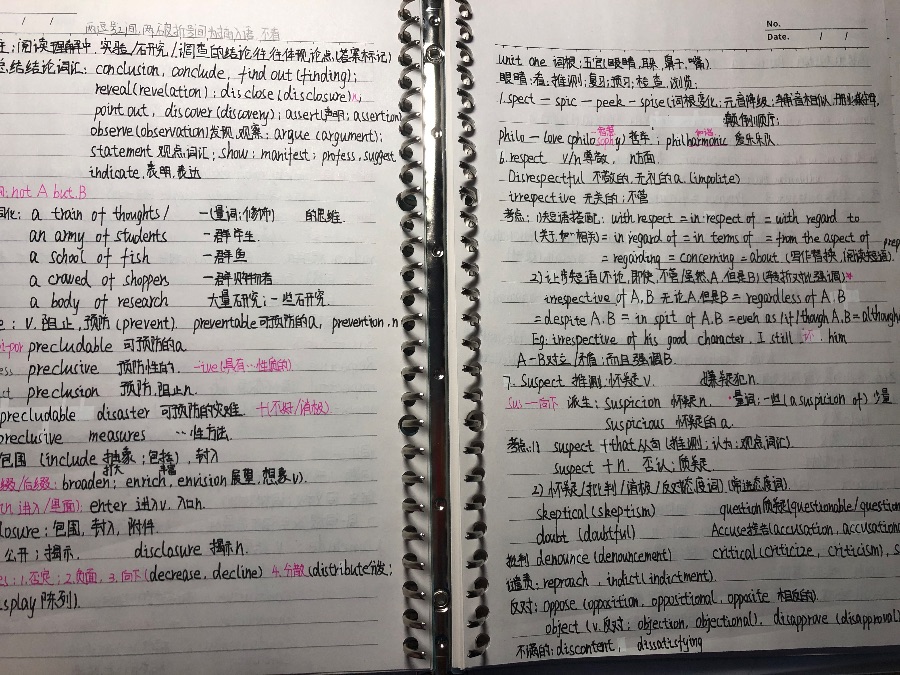 两逗号之间,两破折号间为插入语,不看
: 阅读理解中 实验/研究/调查的结论往往体现论点(答案标记)
总结结论词汇: conclusion, conclude, find out (finding);
reveal (revelation); disclose (disclosure)n;
point out, discover (discovery); assert(声明; assertion
observe (observation)发现,观察; argue (argument);
statement 观点词汇; show; manifest; profess, suggest
indicate, 表明,表达
not A but B
a train of thoughts/ 一(量词;修饰) 的思维
an army of students 一群学生
a school of fish 一群鱼
a crowed of shoppers 一群购物者
a body of research 大量研究;一些研究
: v. 阻止,预防 (prevent). preventable可预防的a, prevention.n
precludable 可预防的a
preclusive 预防性的. -ive(具有…性质的)
preclusion 预防,阻止n.
precludable disaster 可预防的灾难 +(不好/消极)
preclusive measures …性方法
包围 (include 抽象; 包括), 封入
后缀: broaden; enrich, envision 展望,想象v).
进入/里面): enter 进入v. 入口n.
closure: 包围, 封入, 附件.
公开; 揭示. disclosure 揭示n.
: 1.否定; 2.负面, 3.向下(decrease, decline) 4.分散(distribute分发;
splay 陈列).
No.
Date. / /
Unit one 词根: 五官(眼睛,耳朵,鼻子,嘴).
眼睛: 看; 推测; 复习; 预习; 检查, 浏览;
1. spect — spic — peek — spise(词根变化: 元音降级;
颠倒顺序;
philo — love (philosophy) 哲学; philharmonic 爱乐乐队
6. respect v/n 尊敬, n方面.
Disrespectful 不敬的,无礼的a (impolite)
irrespective 无关的; 不管
考点: 1)短语搭配: with respect = in respect of = with regard to
(关于/如…相关) = in regard of = in terms of = from the aspect of prep
= regarding = concerning = about (写作替换,阅读短语).
2) 让步短语(不论,即使,不管,虽然A,但是B)(转折对比强调)*
irrespective of A, B 无论A,但是B = regardless of A, B
= despite A, B = in spit of A, B = even as/if/though A, B = although
Eg: irrespective of his good character, I still 讨 him
A-B对立/矛盾; 而且强调B.
7. Suspect 推测,怀疑v. 嫌疑犯n.
sus—向下 派生: suspicion 怀疑n. *量词: 一些(a suspicion of) 少量
suspicious 怀疑的a.
考点: 1) suspect +that 从句(推测; 认为; 观点词汇)
suspect +n. 否认; 质疑.
2) 怀疑/批判/消极/反对态度词) (筛选态度词).
skeptical (skeptism) question质疑(questionable/question
doubt (doubtful) Accuse控告(accusation, accusationa
批判 denounce (denouncement) critical (criticize, criticism), s
谴责: reproach, indict (indictment).
反对: oppose (opposition, oppositional, opposite 相反的).
object (v.反对; objection, objectional). disapprove (disapproval)
不满的: discontent, dissatisfying